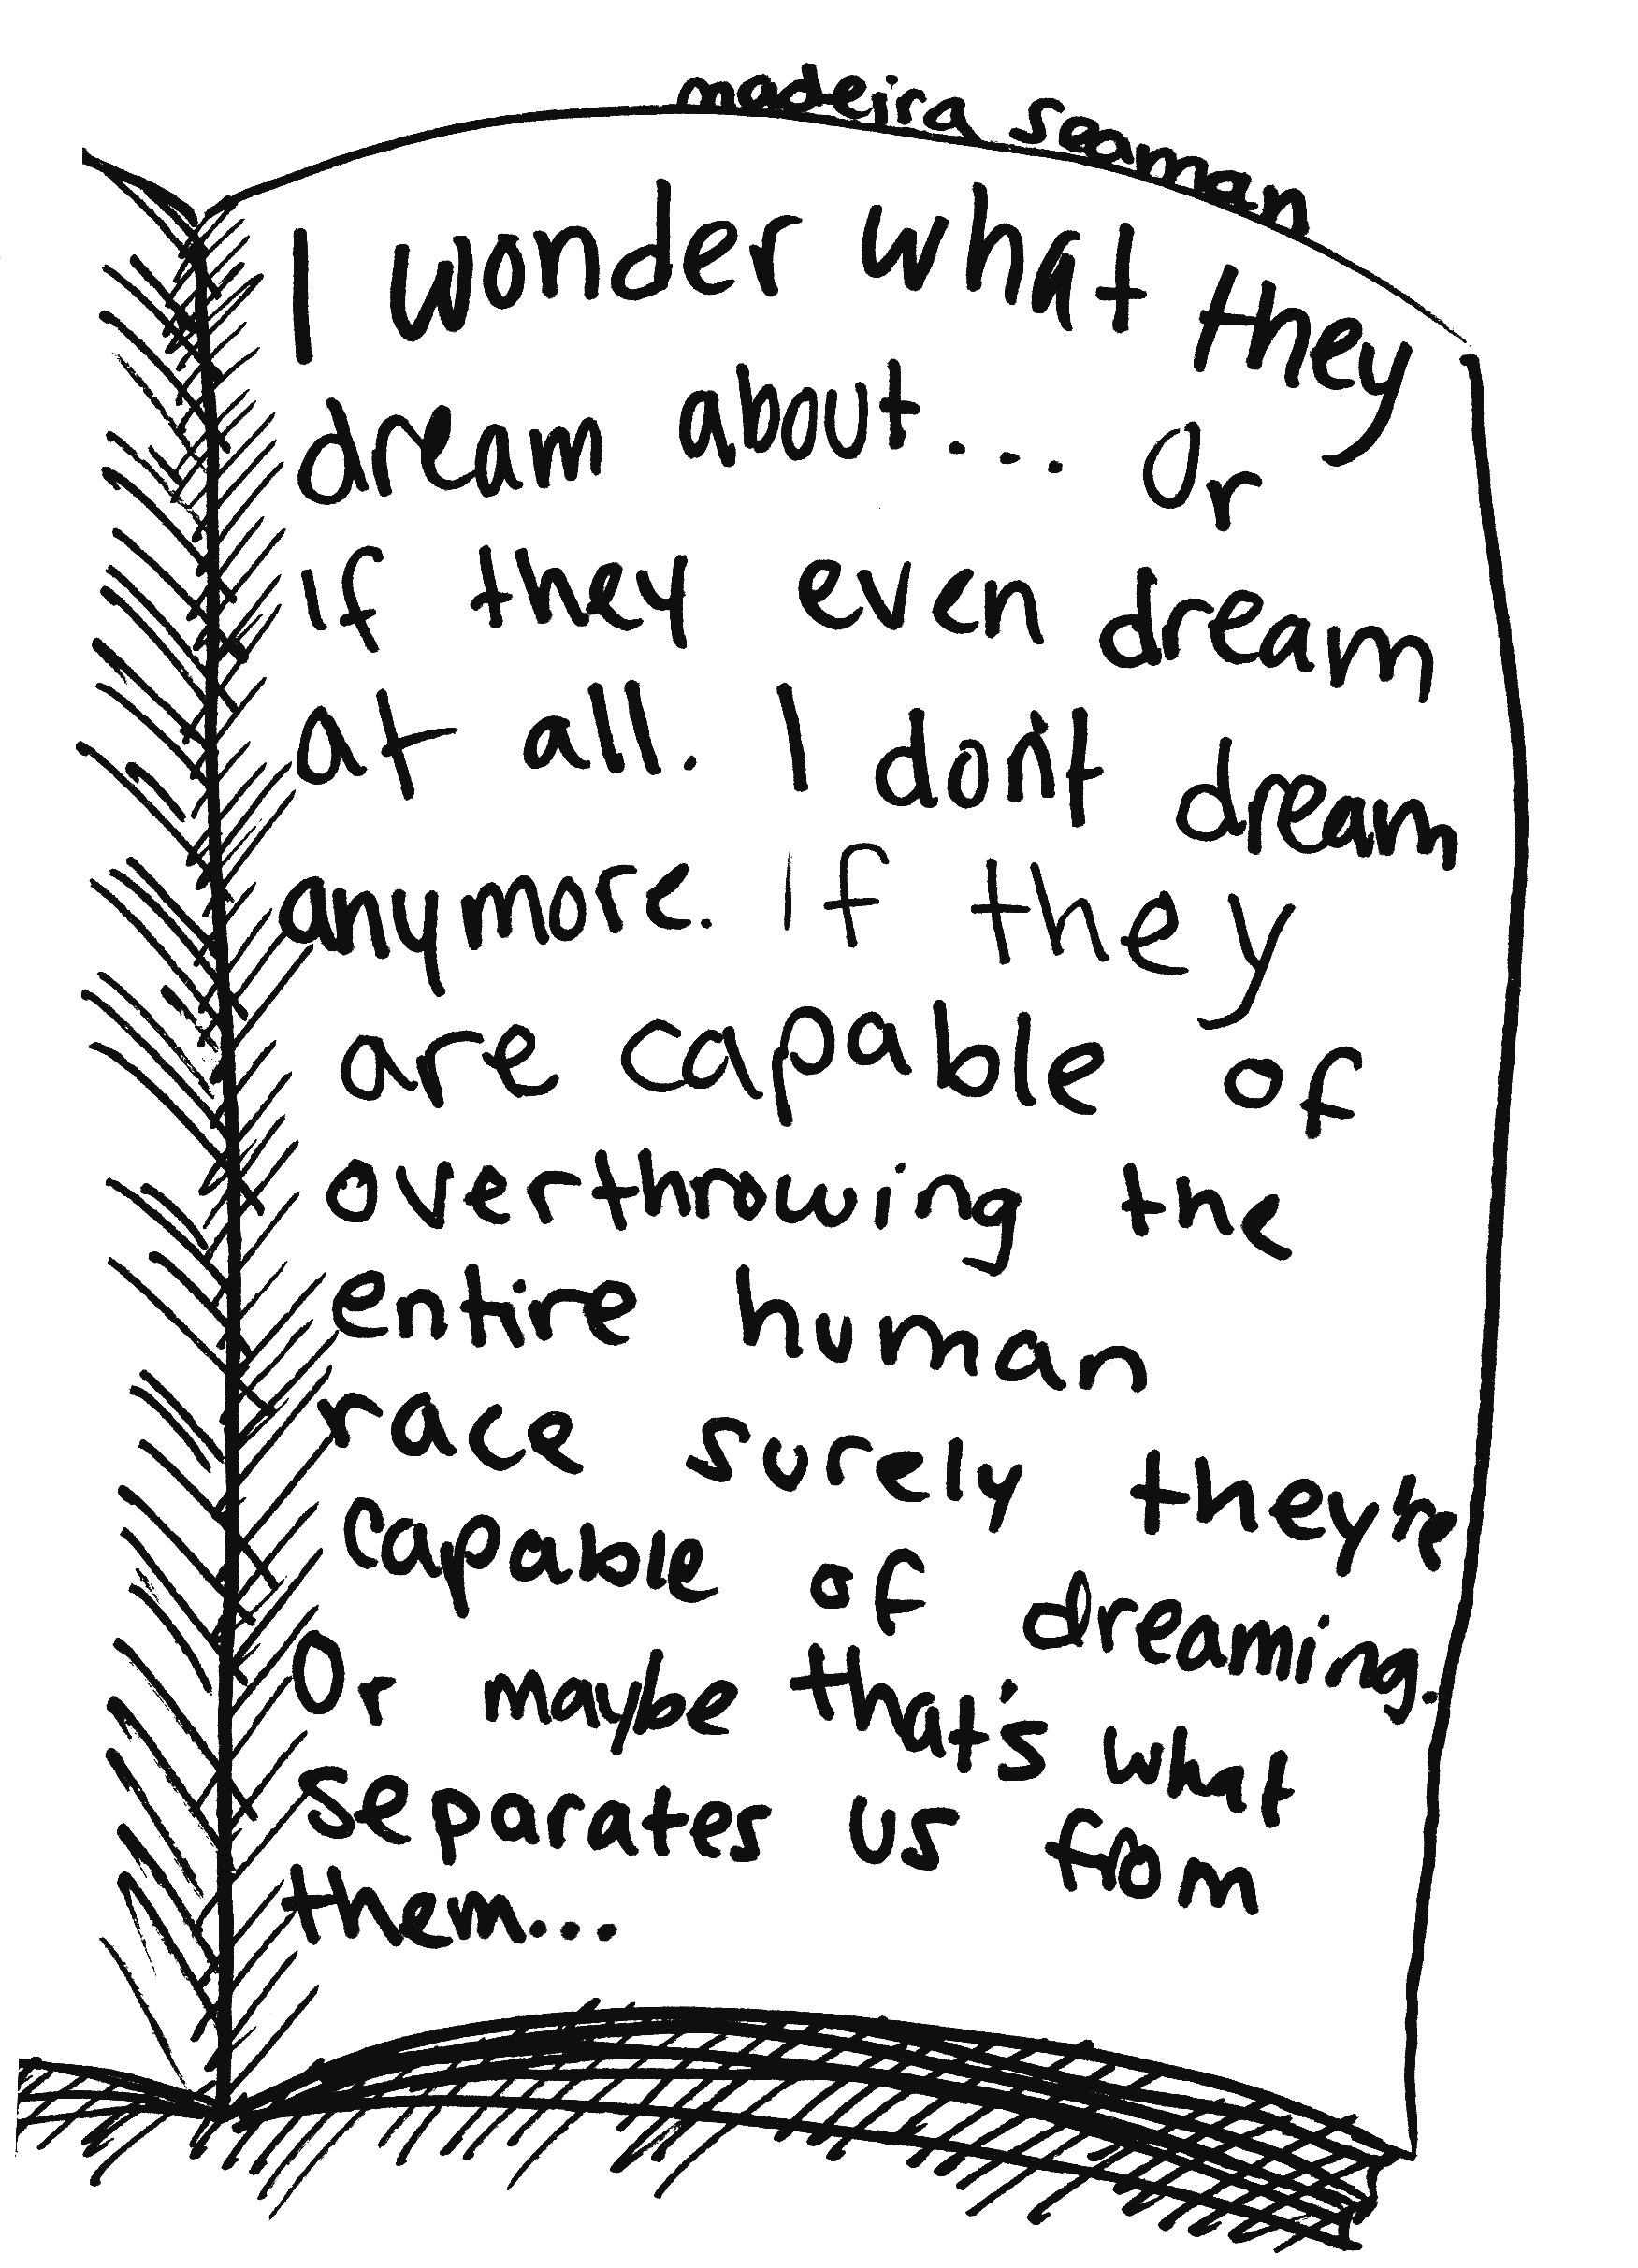 madeira seaman
I wonder what they
dream about... Or
if they even dream
at all. I don't dream
anymore. If they
are capable of
overthrowing the
entire human
race surely they're
capable of dreaming.
Or maybe that's what
separates us from
them...